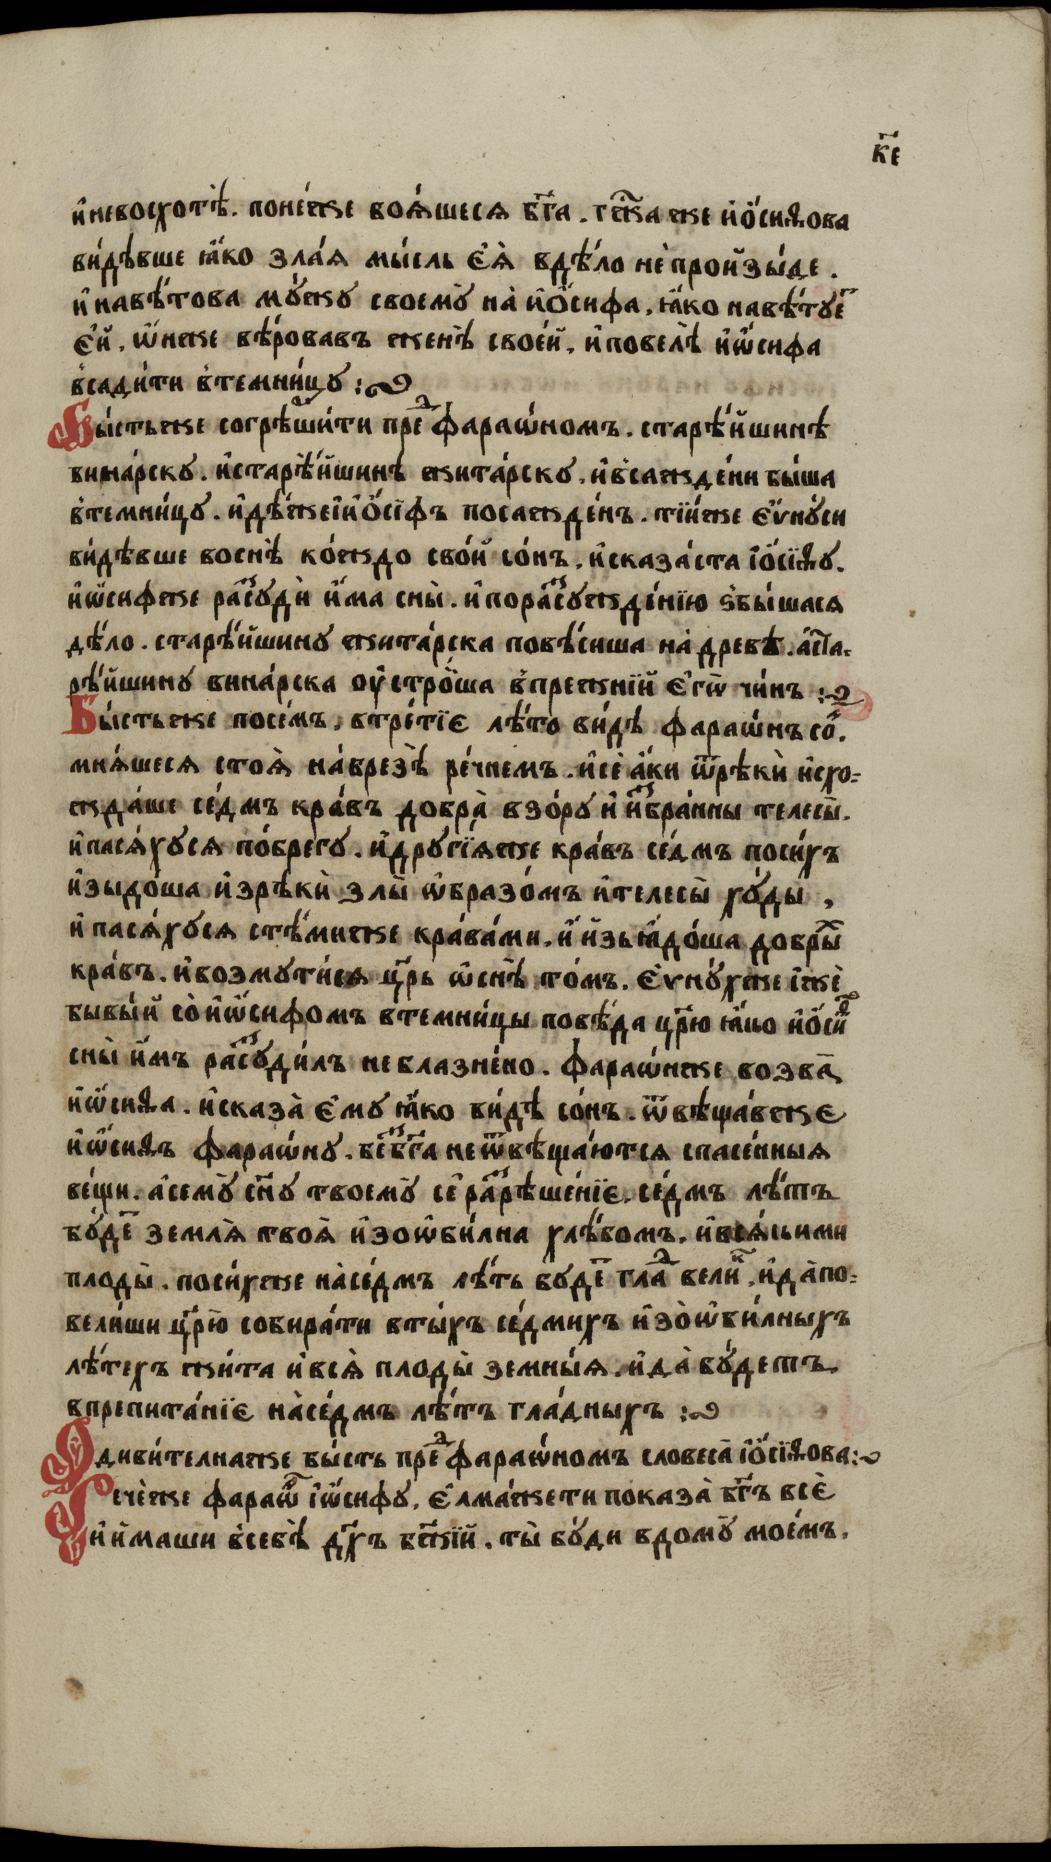 к҃е
и҆ невосхотѣ̀. поне́же боя́шеся бг҃а. гсж҃а же и҆ѻ҆́сиѳова
ви́дѣвше ꙗ҆́ко зла́я мы́сль є҆я̀ вдѣ́ло нѐ про и҆зы́де.
и҆ навѣ́това мꙋ́жꙋ своемꙋ̀ на̀ и҆ѻ҆́сифа, ꙗ҆́ко навѣ́тꙋе҃
є҆́й, ѡ҆́нже вѣ́ровавъ женѣ̀ свое́й, и҆ повелѣ̀ и҆ѡ҆́сифа
в̾сади́ти в̾темни́цꙋ :
Бы́стьже согрѣши́ти пред̾ фараѡ́номъ. старѣ́йшинѣ
вина́рскꙋ. и҆ старѣ́йшинѣ жита́рскꙋ, и҆ в̾сажде́ни бы́ша
в̾темни́цꙋ. и҆дѣ́же і҆ и҆ѻ҆́сїфъ посажде́нъ. ті́иже є҆ѵнꙋ́си
ви́дѣвше воснѣ̀ ко́ждо сво́й со́нъ, и҆ сказа́ста і҆ѻ҆́сїѳꙋ.
и҆ѡ҆́сифже разсꙋдѝ и҆́ма сны̀. и҆ поразсꙋжде́нїю ѕбы́шася
дѣ́ло. старѣ́йшинꙋ жита́рска повѣ́сиша на̀ древѣ. а҆ ста-
рѣ́йшинꙋ вина́рска оу҆стро́иша в̾пре́жнїй є҆гѡ̀ чи́нъ :
Бы́стьже посе́мъ, втре́тїе лѣ́то ви́дѣ фараѡ́нъ со́н.
мня́шеся стоя̀ на́брезѣ ре́чнемъ. и҆ сѐ а҆́ки ѿрѣкѝ и҆схо-
жда́ше се́дмъ кра́въ добра̀ взо́рꙋ и҆ и҆збра́нны телесы̀.
и҆ пася́хꙋся по́брегꙋ. и҆ дрꙋгі́яже кра́въ се́дмъ поси́хъ
и҆зыдо́ша и҆зрѣкѝ злы̀ ѡ҆бразо́мъ и҆ телесы̀ хꙋ́ды,
и҆ пася́хꙋся стѣ́миже кра́вами. и҆ и҆зъꙗдо́ша добры̀х
кра́въ. и҆ возмꙋти́ся цр҃ь ѡ҆снѣ̀ то́мъ. є҆ѵнꙋ́хже і҆́же
бывы́й со̀ и҆ѡ҆́сифомъ в темни́цы повѣ́да цр҃ю ꙗ҆́ко и҆ѻ҆́сиѳ
сны̀ и҆́мъ разсꙋди́лъ неблазне́но. фараѡ́нже возва̀
и҆ѡ҆́сиѳа. и҆ сказа̀ є҆мꙋ ꙗ҆́ко ви́дѣ со́нъ. ѿвѣща́вже
и҆ѡ҆́сиѳъ фараѡ́нꙋ. безбг҃а не ѿвѣща́ются спасе́нныя
ве́щи. а҆ семꙋ̀ снꙋ̀ твоемꙋ̀ сѐ разрѣше́нїе, се́дмъ лѣ́тъ
бꙋ́де҃ земля̀ твоя̀ и҆зоѡби́лна хлѣ́бомъ, и҆ вся́кими
плоды̀. поси́хже на̀ се́дмъ лѣ́тъ бꙋде҃ глад вели́к, и҆ да̀ по-
вели́ши цр҃ю̀ собира́ти в ты́хъ се́дмихъ и҆зоѡби́лныхъ
лѣ́техъ жи́та и҆ вся̀ плоды̀ земны́я. и҆ да̀ бꙋ́детъ
впрепита́нїе на̀ се́дмъ лѣ́тъ гла́дныхъ :
Дивителнаже бы́сть пред̾ фараѡ́номъ словеса̀ і҆ѻ҆́сїѳова:
Рече́же фараѡ́н і҆ѡ҆́сифꙋ, є҆лма́жети показа̀ бг҃ъ всѐ
и҆ и҆́маши в̾себѣ̀ дх҃ъ бж҃їй. ты̀ бꙋ́ди вдомꙋ̀ мое́мъ.